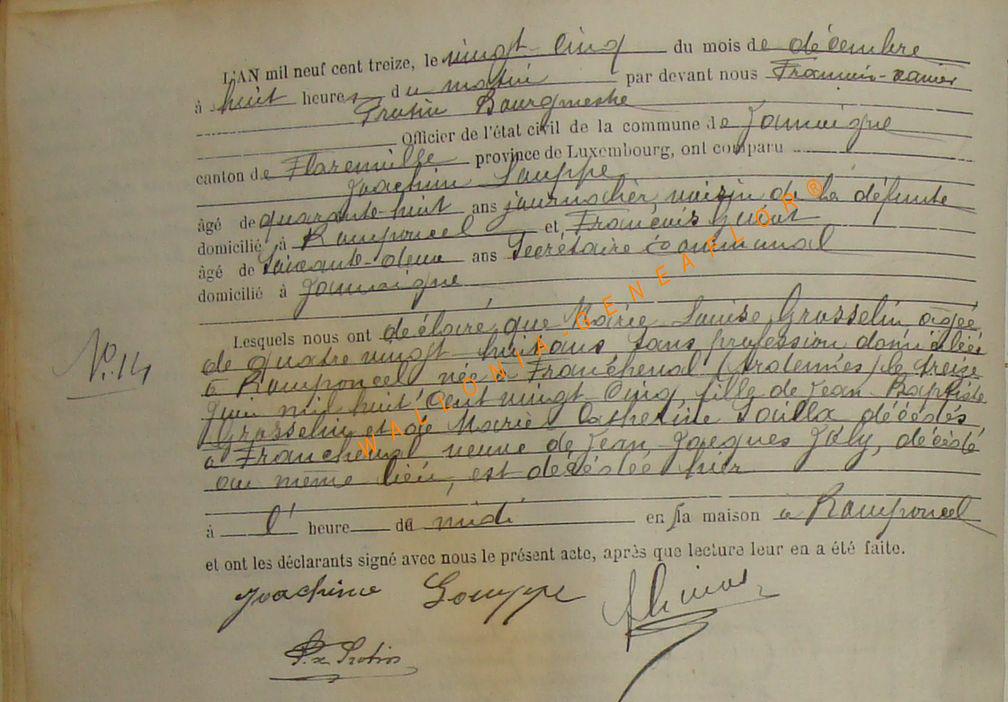 L'AN mil neuf cent treize, le vingt-cinq du mois de décembre
à huit heures du matin par devant nous François-xavier
Protin Bourgmestre
Officier de l'état civil de la commune de Jamoigne
canton de Florenville province de Luxembourg, ont comparu
Joachim Louppe
âgé de quarante-huit ans journalier, voisin de la défunte
domicilié à Romponcel et François
âgé de Soixante-deux ans Secrétaire communal
domicilié à Jamoigne
Lesquels nous ont déclaré que Marie Louise Grosselin, âgée
de quatre vingt-huit ans sans profession domiciliée
à Romponcel née à Francheval (Ardennes) le treize
Juin mil huit Cent vingt-Cinq, fille de Jean Baptiste
Grosselin et de Marie Catherine décédés
à Francheval veuve de Jean Jacques Joly, décédé
au même lieu, est décédée hier
No. 14
à l' heure de midi en sa maison à Romponcel
et ont les déclarants signé avec nous le présent acte, après que lecture leur en a été faite.
Joachime Louppe
Protin
WALLONIA-GENEAFLOR®